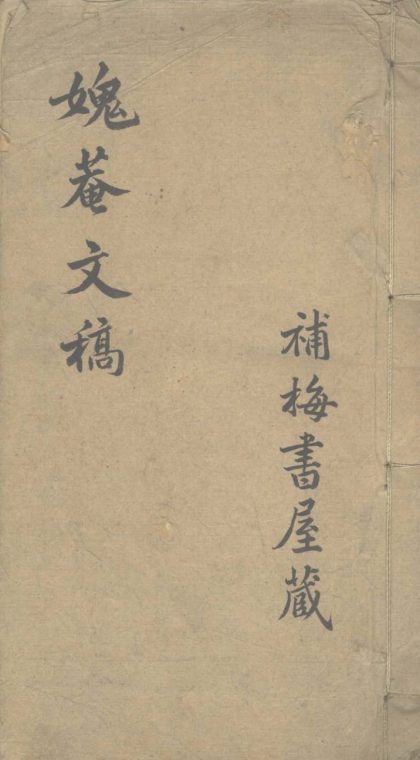 補梅書屋蔵
媿菴文稿